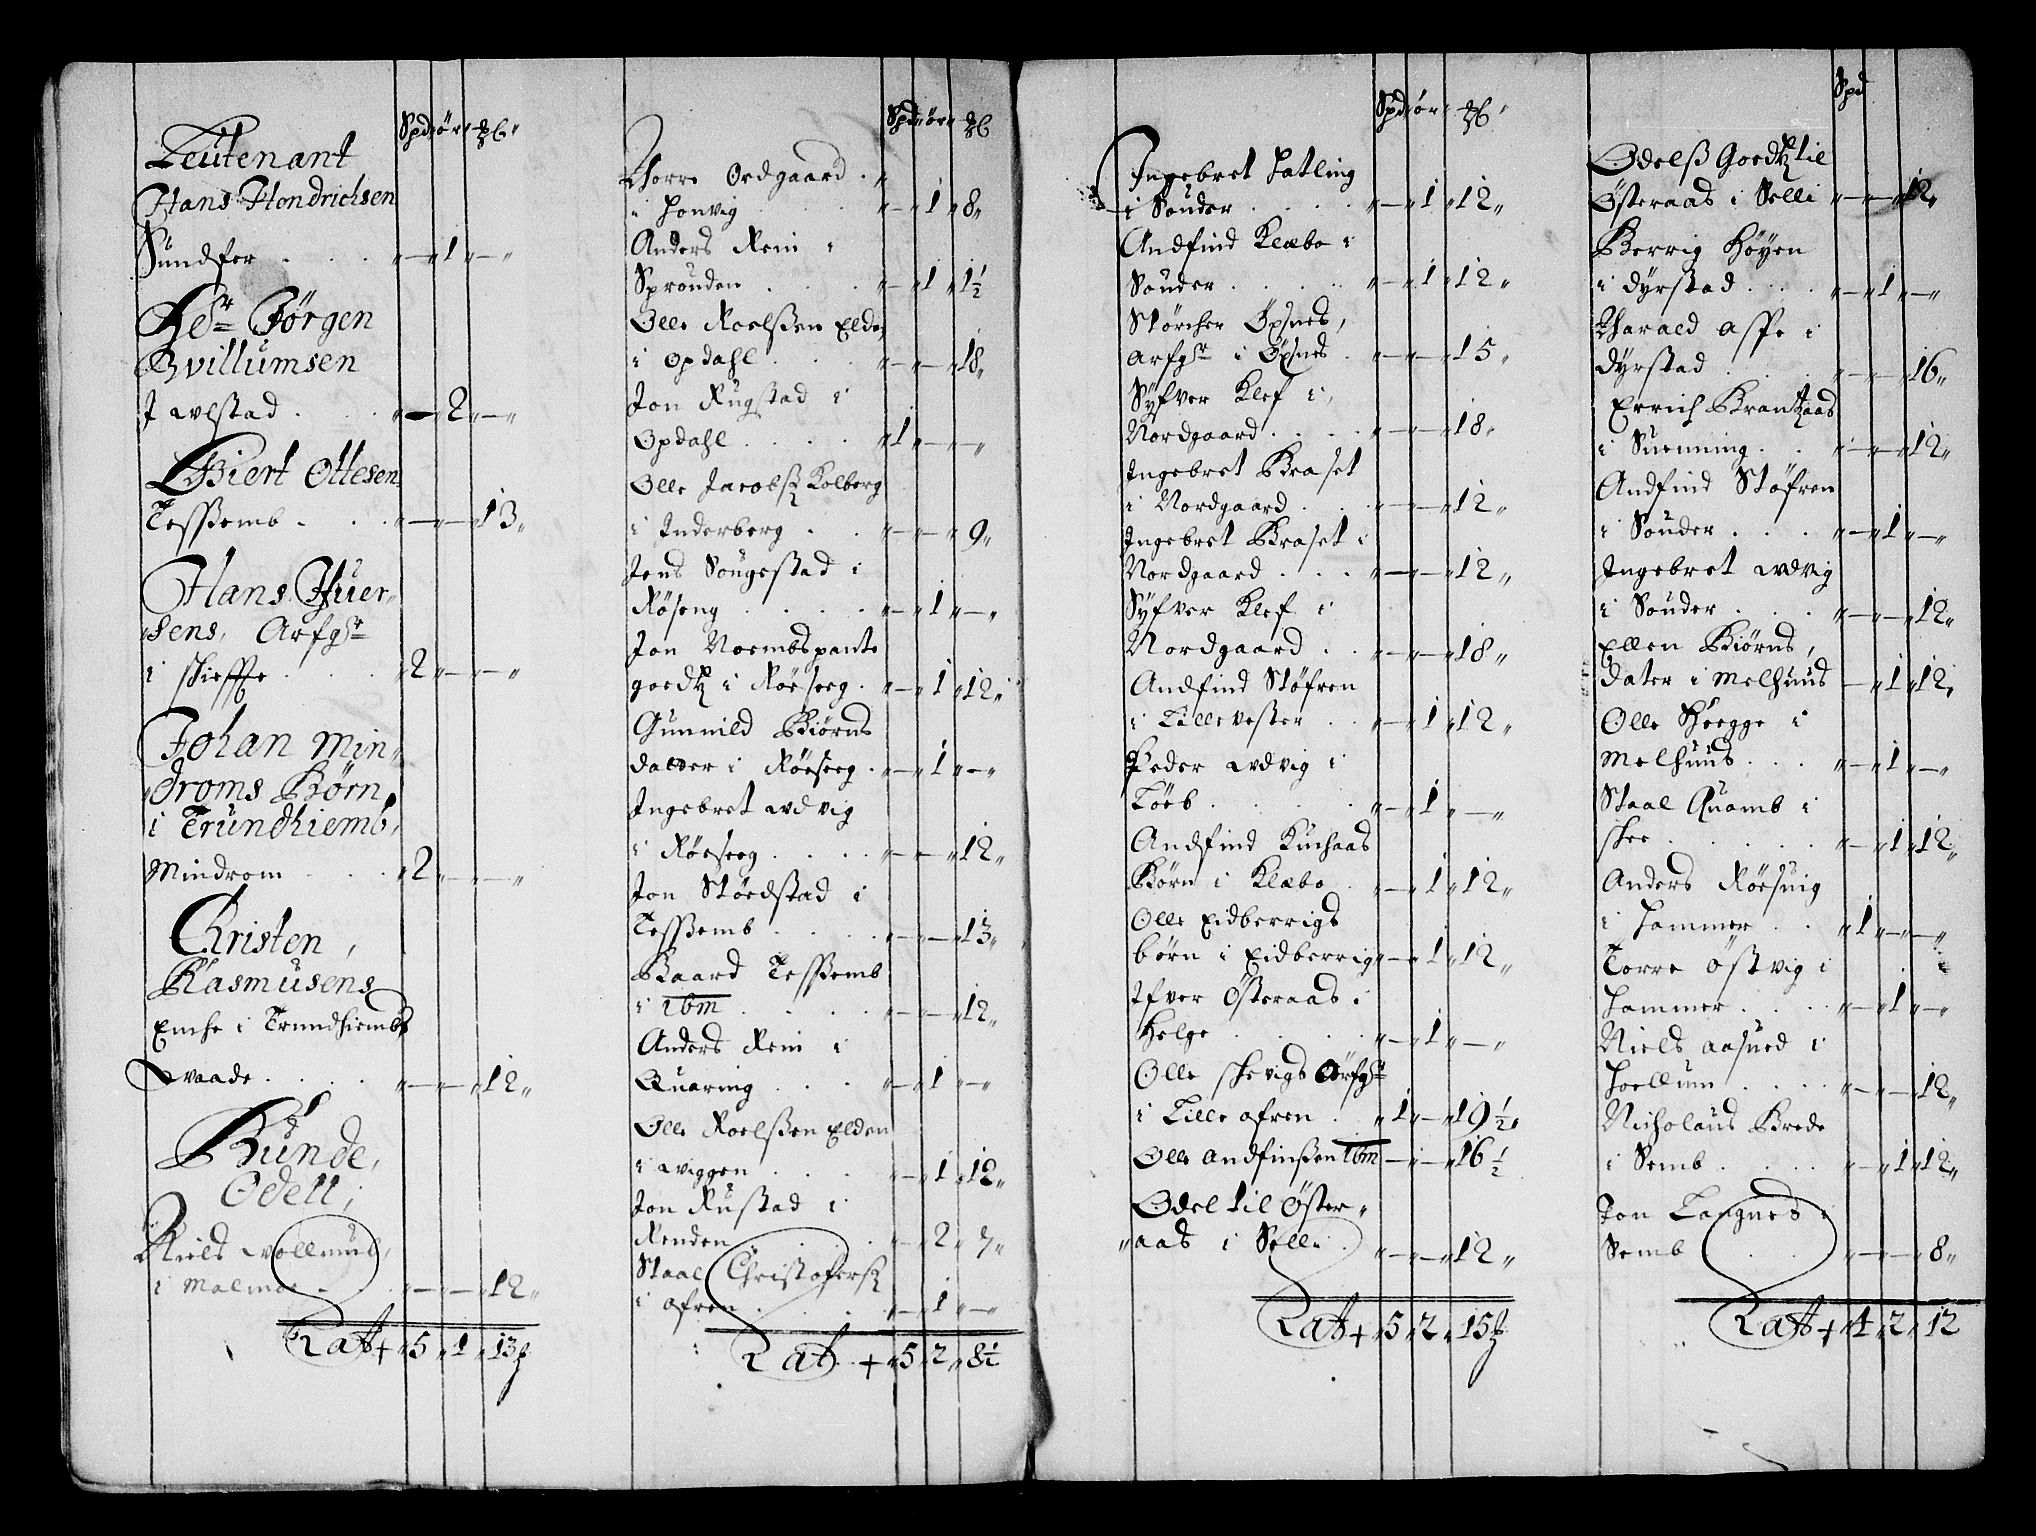 Spd ör ℔
Leutenant
Hans Hendrichsen
Sundfer . . . . — 1 —
Hr Jörgen
Villumsen
J Wlstad . . . — 2 —
Giert Ottesen
Tessemb . . . . — — 13
Hans Ifuer-
sens, Arfgr
i skieffte . . . 2 — —
Johan Min-
droms Börn
i Trundhiemb,
Mindrom . . . 2 — —
Christen,
Rasmusens
Enche i Trundhiembs
Waade . . . . — — 12
Bünde,
Odell,
Niels Vollmuel,
i Malmoe . . . — — 12
Lat+ 5 1 13
Spd ör ℔
Thorre Ordgaard .
i Honvig . . . — 1 8
Anders Rein i
Sprouden . . . — 1 1½
Olle Roelssen Elde,
i Opdahl . . . — — 18
Jon Rugstad i
Opdahl . . . . 1 — —
Olle Jacobs Kolberg
i Inderberg . . — — 9
Jens Sougestad i
Röseng . . . . — 1 —
Jon Noembs pante
goedtz i Röeseeg . — 1 12
Gunnild Biörns
datter i Röeseeg . — 1 —
Ingebret Wdvig
i Röeseeg . . . — — 12
Jon Stöedstad i
Tessemb . . . . — — 13
Baard Tessemb
i ibm . . . . — — 12
Anders Rein i
Quaring . . . — 1 —
Olle Roelssen Elden
i Wiggen . . . — 1 12
Jon Rustad i
Renden . . . — 2 7
Staal Christophers
i Ofren . . . . — 1 —
Lat + 5 2 8½
Spd ör ℔
Ingebret Hatling
i Souder . . . . — 1 12
Andfind Klæbo i
Souder . . . . — 1 12
Störcher Öpsnes,
arfgr i Öpsnes . — — 15
Syfver Klef i,
Nordgaard . . . — — 18
Ingebret Braset
i Nordgaard . . — — 12
Ingebret Braset i
Nordgaard . . . — — 12
Syfver Klef i
Nordgaard . . — — 18
Andfind Stöfren
i Lillevester . . — 1 12
Peder Wdvig i
Töeb . . . . — 1 —
Andfind Kuchaas
Börn i Klæbo . — 1 12
Olle Eidberrigs
börn i Eidberrig — 1 12
Ifver Österaas i
Helge . . . . . — 1 —
Olle Skevigs Arfgr
i Lille Ofren . . 1 — 19½
Olle Andfinssen ibm — — 16½
Odel til Öster-
aas i Selli . — — 12
Lat+ 5 2 15½
Spd
Odelss Goedtz til
Österaas i Selli — — 12
Berrig Höyen
i Dyrstad . . . — 1 —
Harald Asse i
Dyrstad . . . — — 16
Errich Krantzaas
i Suenning . . — — 12
Andfind Stöfren
i Souder . . . — 1 —
Ingebret Wdvig
i Souder . . . — — 12
Ellen Biörns,
dater i Melhuus — 1 12
Olle Skegge i
Melhuus . . . — 1 —
Staal Quamb i
skee . . . . . — 1 12
Anders Röesuig
i Hammer . . 1 — —
Torre Östvig i
Hammer . . . — 1 —
Niels Aasued i
Hoellum . . . — — 12
Nicholaus Brede
i Semb . . . . — 1 12
Jon Langnes i
Semb . . . — — 8
Lat+ 4 2 12